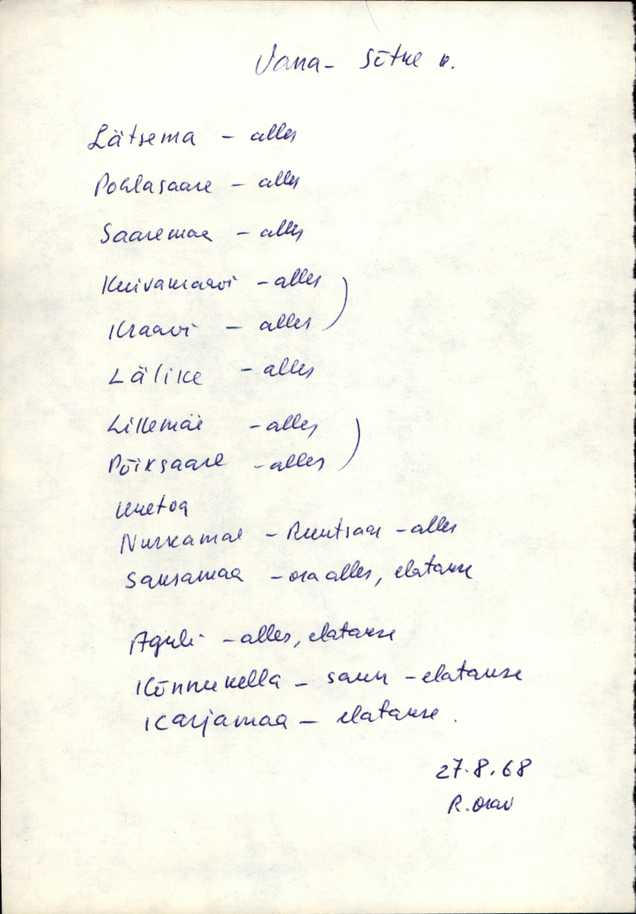 Vana-Sõtke k.
Lätsema - alles
Pohlasaare - alles
Saaremaa - alles
Kuivakraavi - alles
Kraavi - alles
Lälike - alles
Lillemäe - alles
Põiksaare - alles
Nurkamäe - - alles
Sausamaa - osa alles, elatakse
Aguli - alles, elatakse
Kõnnukella - saun - elatakse
Karjamaa - elatakse.
27.8.68
R. Orav